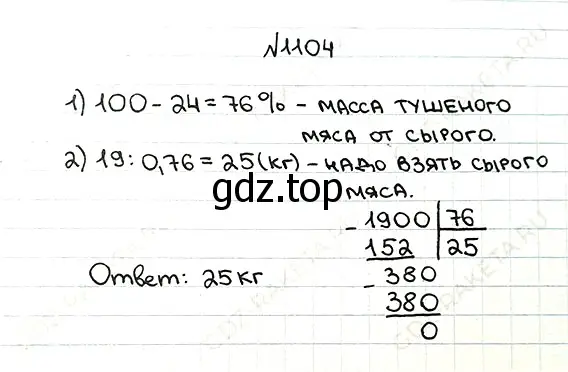 №1104
1) 100 - 24 = 76% - масса тушеного
мяса от сырого.
2) 19 : 0,76 = 25(кг) - надо взять сырого
мяса.
gdz.top
- 1900 | 76
152 | 25
- 380
380
0
Ответ: 25 кг
GDZ-RAKETA.RU